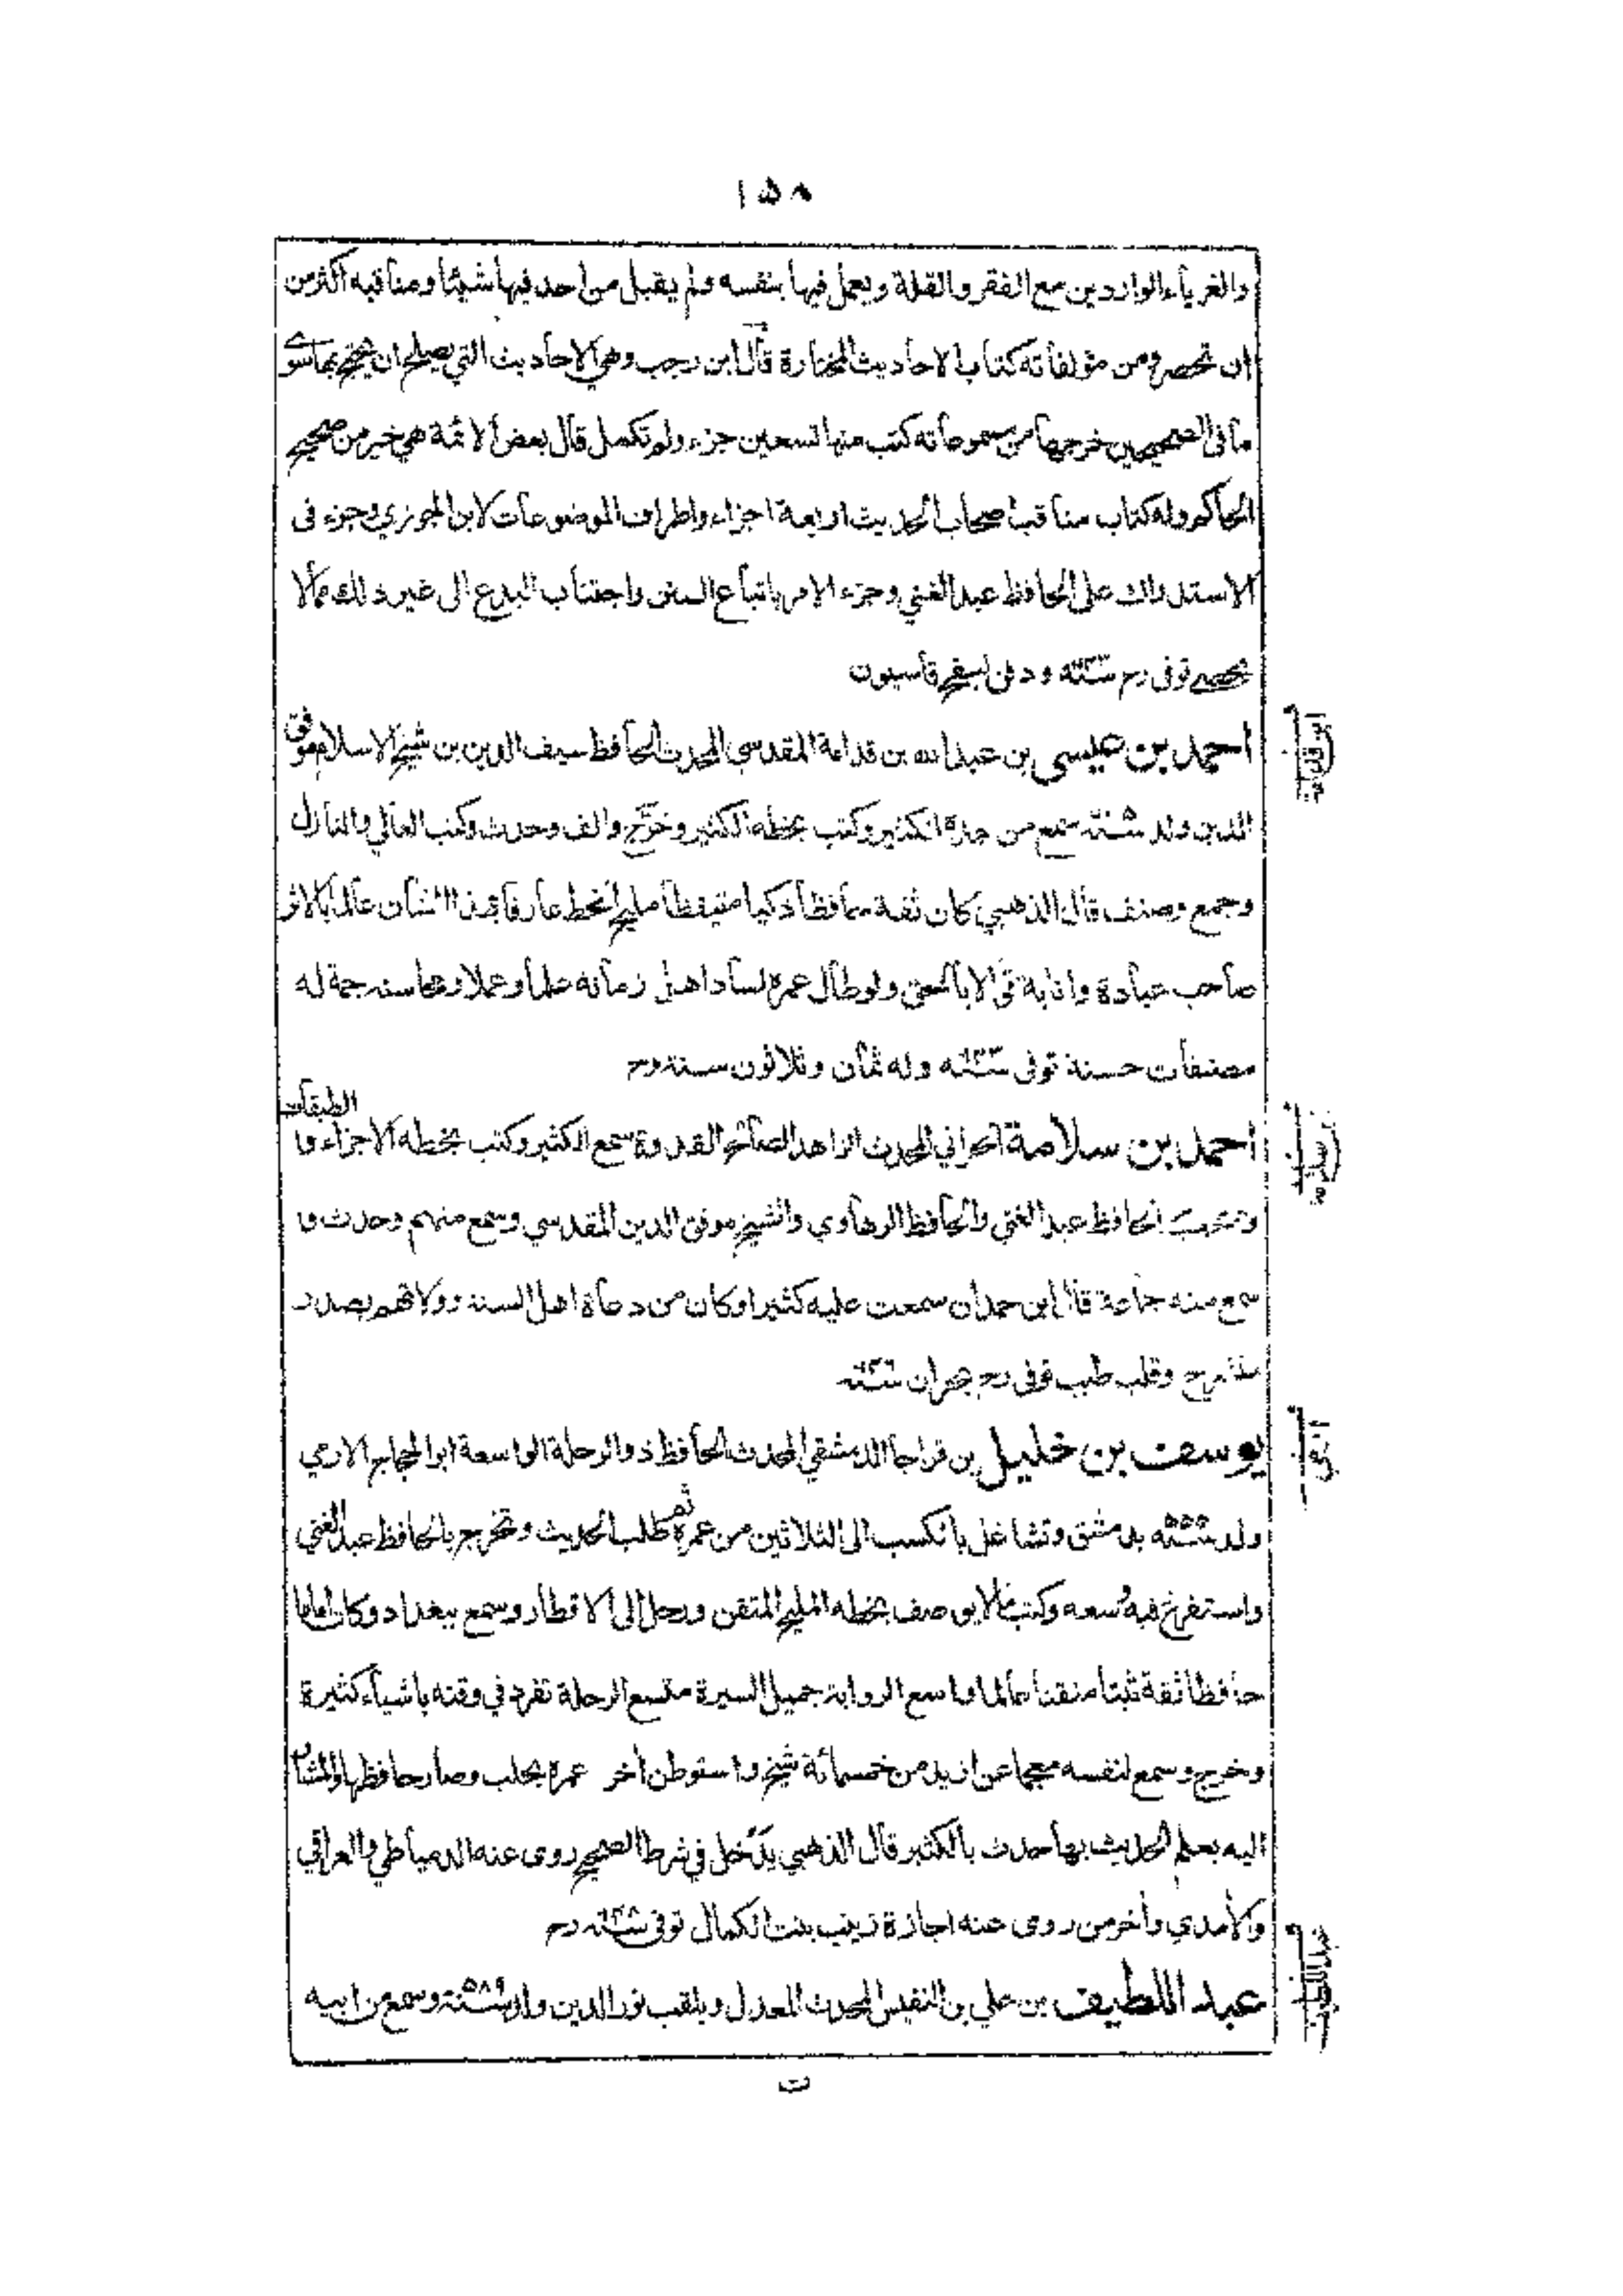 ١٥٨
والغرباء الواردين مع الفقر والقلة ويعمل فيها بنفسه ولم يقبل من احد فيها شيئا ومناقبه اكثر من
ان تحصر ومن مؤلفاته كتاب الاحاديث المختارة قال ابن رجب وهي الاحاديث التي يصلح ان يحتج بها سوى
ما في الصحيحين خرجها من مسموعاته كتب منها تسعين جزء ولم تكمل قال بعض الائمة هي خير من صحيح
الحاكم وله كتاب مناقب اصحاب الحديث اربعة اجزاء واطراف الموضوعات لابن الجوزي وجزء في
الاستدراك على الحافظ عبد الغني وجزء الامر باتباع السنن واجتناب البدع الى غير ذلك مما لا
يحصى توفى رح ودفن بسفح قاسيون
احمد بن عيسى بن عبد الله بن قدامة المقدسي المحدث الحافظ سيف الدين بن شيخ الاسلام موفق
الدين ولد سمع من جده الكثير وكتب بخطه الكثير وخرّج والف وحدث وكتب العالي والنازل
وجمع وصنف قال الذهبي كان ثقة حافظا ذكيا متيقظا مليح الخط عارفا بهذا الشان عالما بالاثر
صاحب عبادة وانابة ولو طال عمره لساد اهل زمانه علما وعملا ومحاسنه جمة له
مصنفات حسنة توفى وله ثمان وثلاثون سنة رح
احمد بن سلامة الحراني المحدث الزاهد الصالح القدوة سمع الكثير وكتب بخطه الاجزاء و الطبقات
وصحب الحافظ عبد الغني والحافظ الرهاوي والشيخ موفق الدين المقدسي وسمع منهم وحدث و
سمع منه جماعة قال ابن حمدان سمعت عليه كثيرا وكان من دعاة اهل السنة وولاتهم بصدر
منشرح وقلب طيب توفى رح بحران
يوسف بن خليل بن قراجا الدمشقي المحدث الحافظ ذو الرحلة الواسعة ابو الحجاج الادمي
ولد ٥٥٥ بدمشق وتشاغل بالكسب الى الثلاثين من عمره ثم طلب الحديث وتخرج بالحافظ عبد الغني
واستفرغ فيه وسعه وكتب ما لا يوصف بخطه المليح المتقن ورحل الى الاقطار وسمع ببغداد وكان اماما
حافظا ثقة ثبتا متقنا عالما واسع الرواية جميل السيرة متسع الرحلة تفرد في وقته باشياء كثيرة
وخرج وسمع لنفسه معجما عن ازيد من خمسمائة شيخ واستوطن اخر عمره بحلب وصار حافظها والمشار
اليه بعلم الحديث بها حدث بالكثير قال الذهبي يدخل في شرط الصحيح روى عنه الدمياطي والعراقي
والامدي واخر من روى عنه اجازة زينب بنت الكمال توفى رح
عبد اللطيف بن علي بن النفيس المحدث المعدل ويلقب نور الدين ولد ٥٨٩ وسمع من ابيه
ت
ابن قدامة